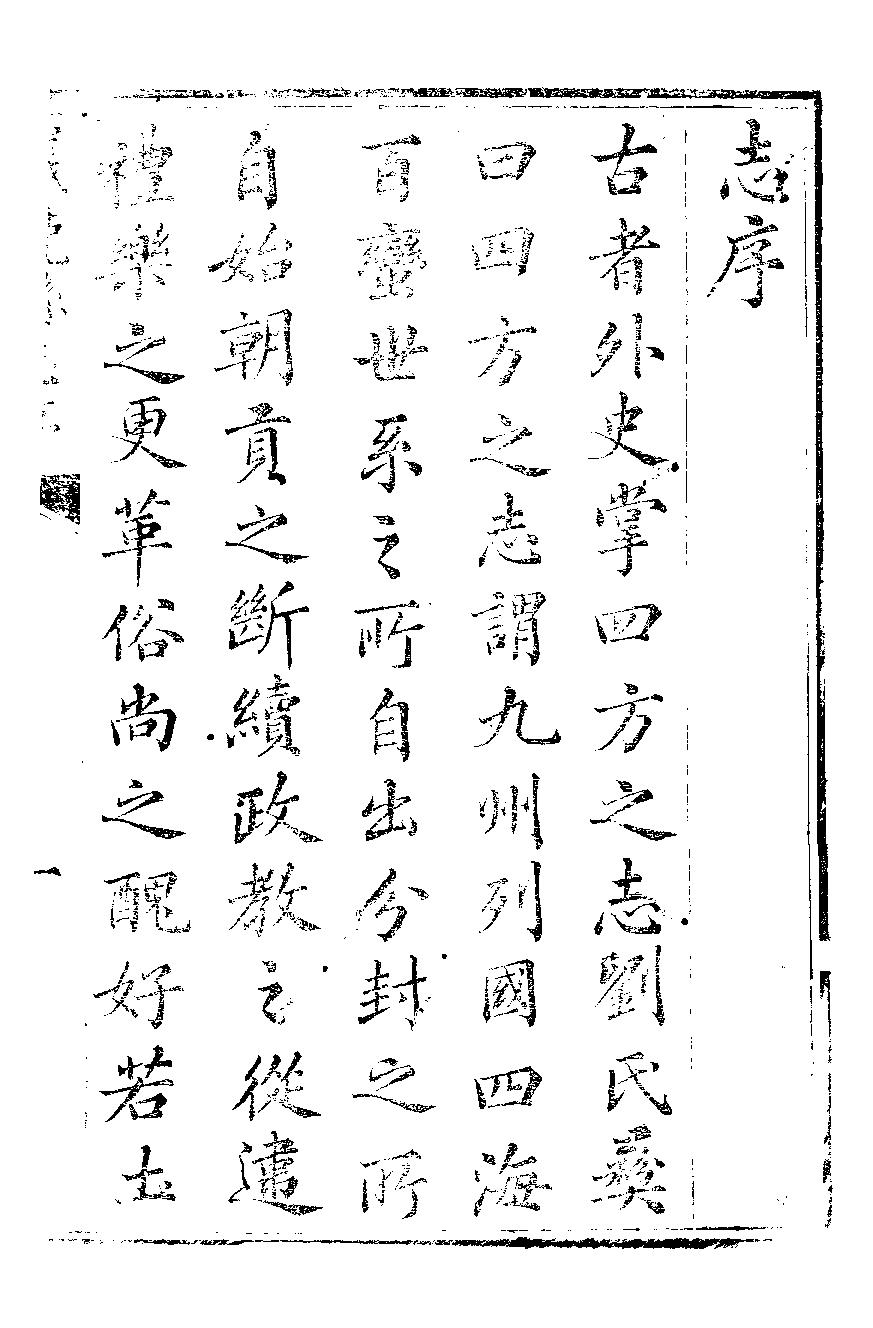 志序
古者外史掌四方之志劉氏彝
曰四方之志謂九州列國四海
百蠻世系之所自出分封之所
自始朝貢之斷續政教之從違
禮樂之更革俗尚之醜好若土
一